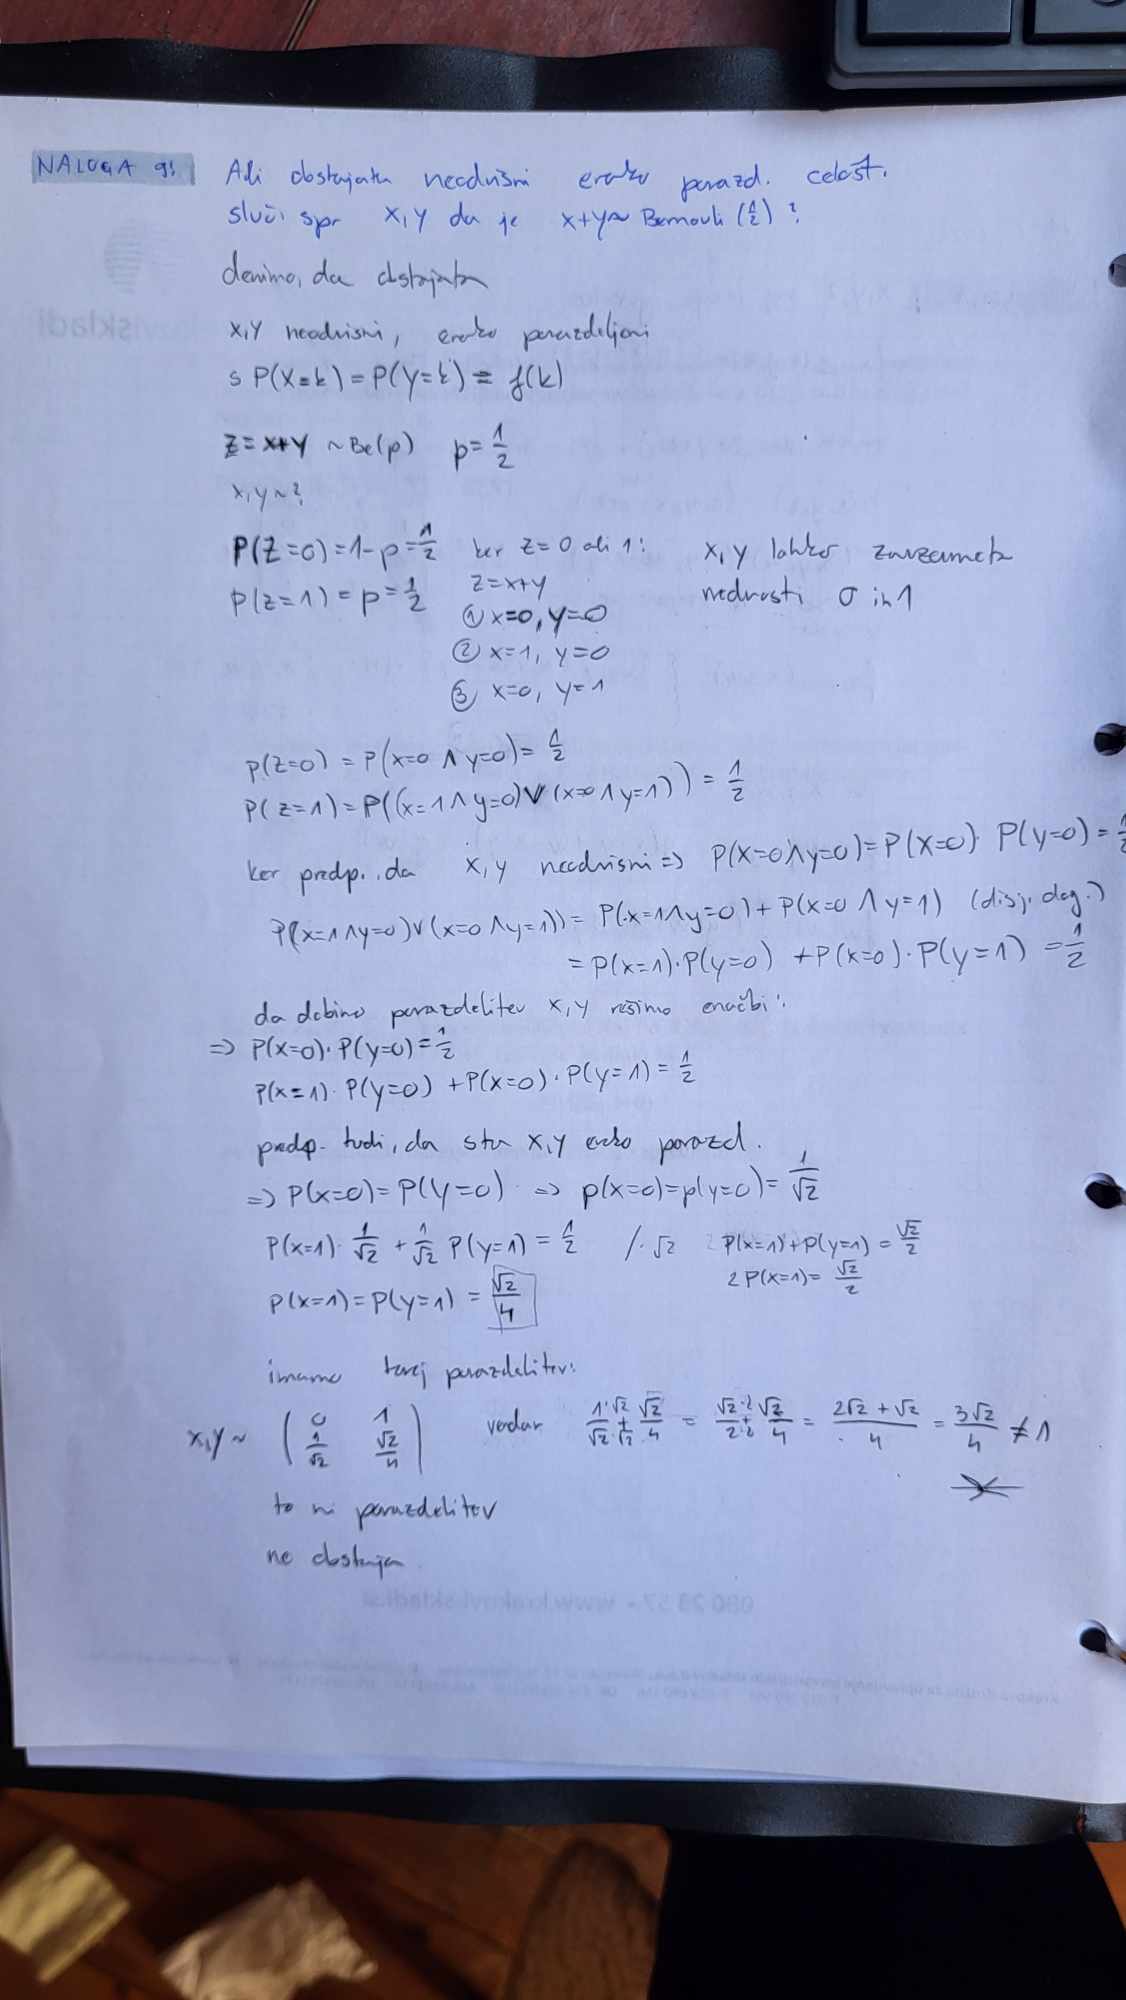 NALOGA 9:
Ali obstajata neodvisni enako porazd. celošt.
sluč. spr X,Y da je X+Y~ Bernouli (1/2)?
denimo, da obstajata
X,Y neodvisni, enako porazdeljeni
s P(X=k) = P(Y=k) = f(k)
Z = X+Y ~ Be(p) p = 1/2
X,Y ~ ?
P(Z=0) = 1-p = 1/2 ker Z=0 ali 1: X,Y lahko zavzameta
P(Z=1) = p = 1/2 Z=X+Y vrednosti 0 in 1
① X=0, Y=0
② X=1, Y=0
③ X=0, Y=1
P(Z=0) = P(X=0 ∧ Y=0) = 1/2
P(Z=1) = P((X=1 ∧ Y=0) ∨ (X=0 ∧ Y=1)) = 1/2
ker predp. da X,Y neodvisni => P(X=0 ∧ Y=0) = P(X=0) · P(Y=0) = 1/2
P(X=1 ∧ Y=0) ∨ (X=0 ∧ Y=1)) = P(X=1 ∧ Y=0) + P(X=0 ∧ Y=1) (disj. dog.)
= P(X=1)·P(Y=0) + P(X=0)·P(Y=1) = 1/2
da dobimo porazdelitev X,Y rešimo enačbi:
=> P(X=0)·P(Y=0) = 1/2
P(X=1)·P(Y=0) + P(X=0)·P(Y=1) = 1/2
predp. tudi, da sta X,Y enako porazd.
=> P(X=0) = P(Y=0) => P(X=0) = P(Y=0) = 1/√2
P(X=1)· 1/√2 + 1/√2 P(Y=1) = 1/2 /·√2 P(X=1) + P(Y=1) = √2/2
2P(X=1) = √2/2
P(X=1) = P(Y=1) = √2/4
imamo torej porazdelitev:
X,Y ~ ( 0 1 1/√2 √2/4 ) vendar 1·√2/√2·√2 + √2/4 = √2·2/2·2 + √2/4 = 2√2 + √2/4 = 3√2/4 ≠ 1
to ni porazdelitev
ne obstaja.
080 29 57 - www.krekovi-skladi.si